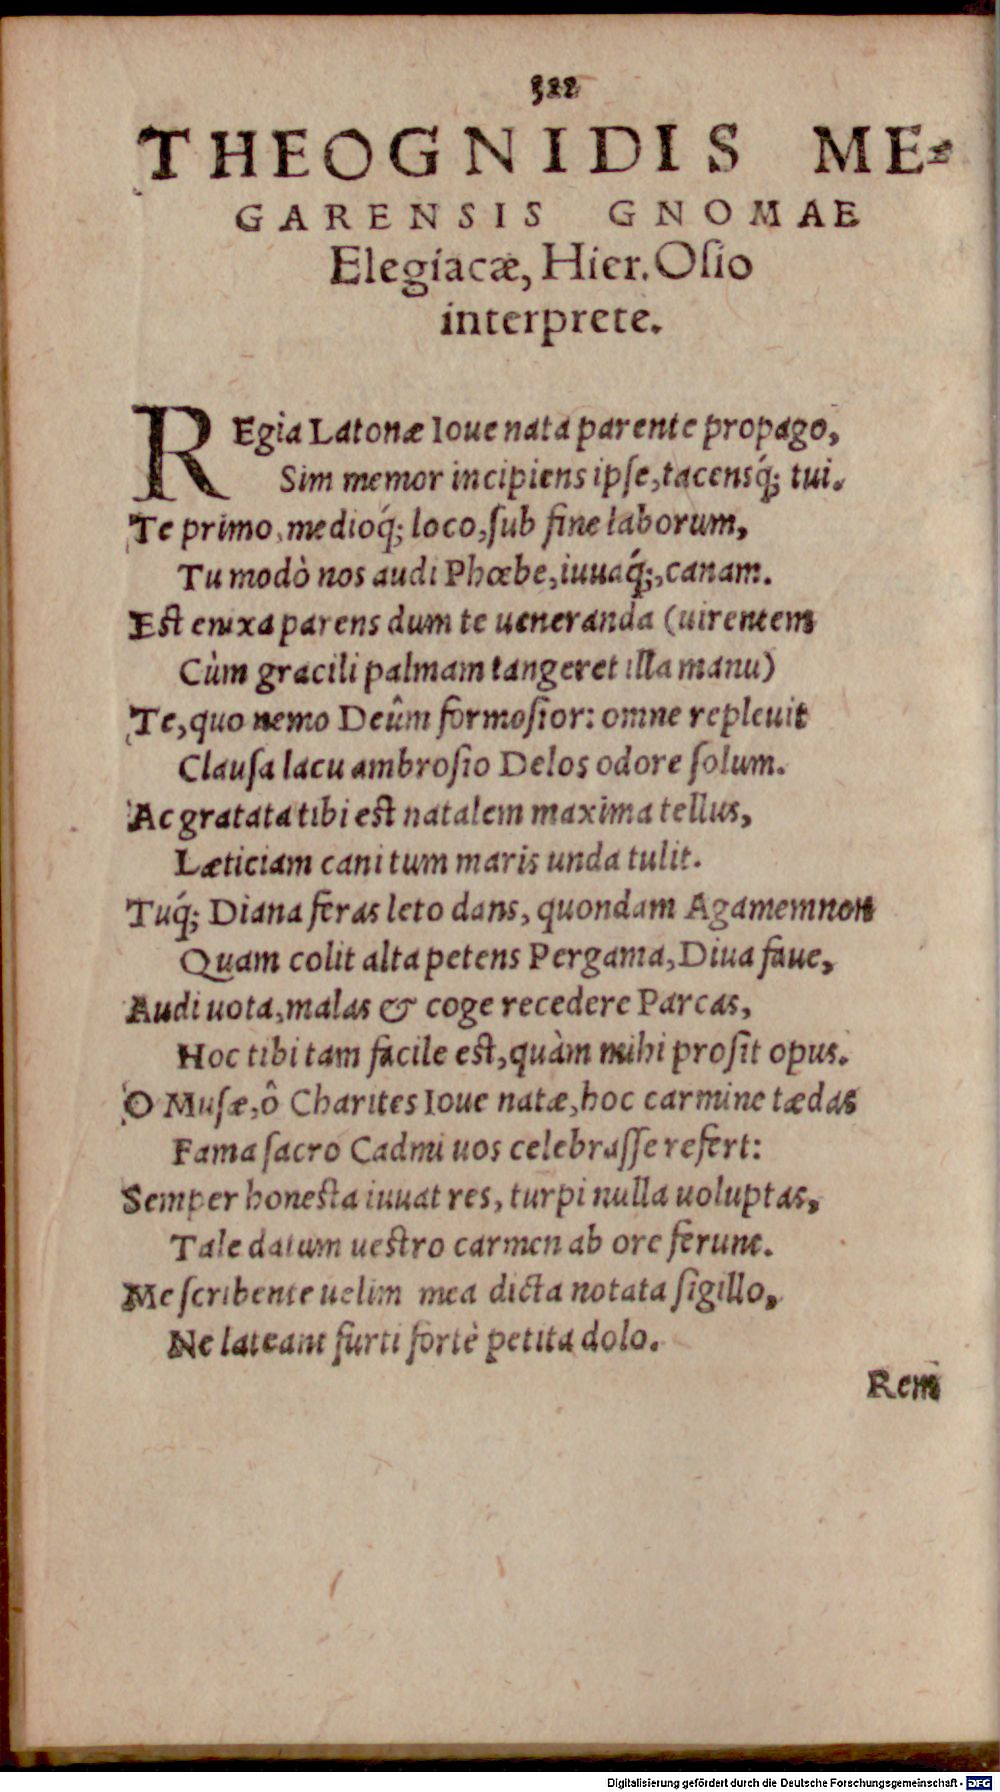 322
THEOGNIDIS ME-
GARENSIS GNOMAE
Elegiacæ, Hier. Osio
interprete.
REgia Latonæ Ioue nata parente propago,
Sim memor incipiens ipſe, tacensq́; tui.
Te primo, medioq́; loco, ſub fine laborum,
Tu modò nos audi Phœbe, iuuaq́;, canam.
Est enixa parens dum te ueneranda (uirentem
Cùm gracili palmam tangeret illa manu)
Te, quo nemo Deûm formoſior: omne repleuit
Clauſa lacu ambroſio Delos odore ſolum.
Ac gratata tibi est natalem maxima tellus,
Læticiam cani tum maris unda tulit.
Tuq́; Diana feras leto dans, quondam Agamemnon
Quam colit alta petens Pergama, Diua faue,
Audi uota, malas & coge recedere Parcas,
Hoc tibi tam facile est, quàm mihi proſit opus.
O Muſæ, ô Charites Ioue natæ, hoc carmine tædas
Fama ſacro Cadmi uos celebraſſe refert:
Semper honesta iuuat res, turpi nulla uoluptas,
Tale datum uestro carmen ab ore ferunt.
Me ſcribente uelim mea dicta notata ſigillo,
Ne lateant furti fortè petita dolo.
Rem
Digitalisierung gefördert durch die Deutsche Forschungsgemeinschaft - DFG